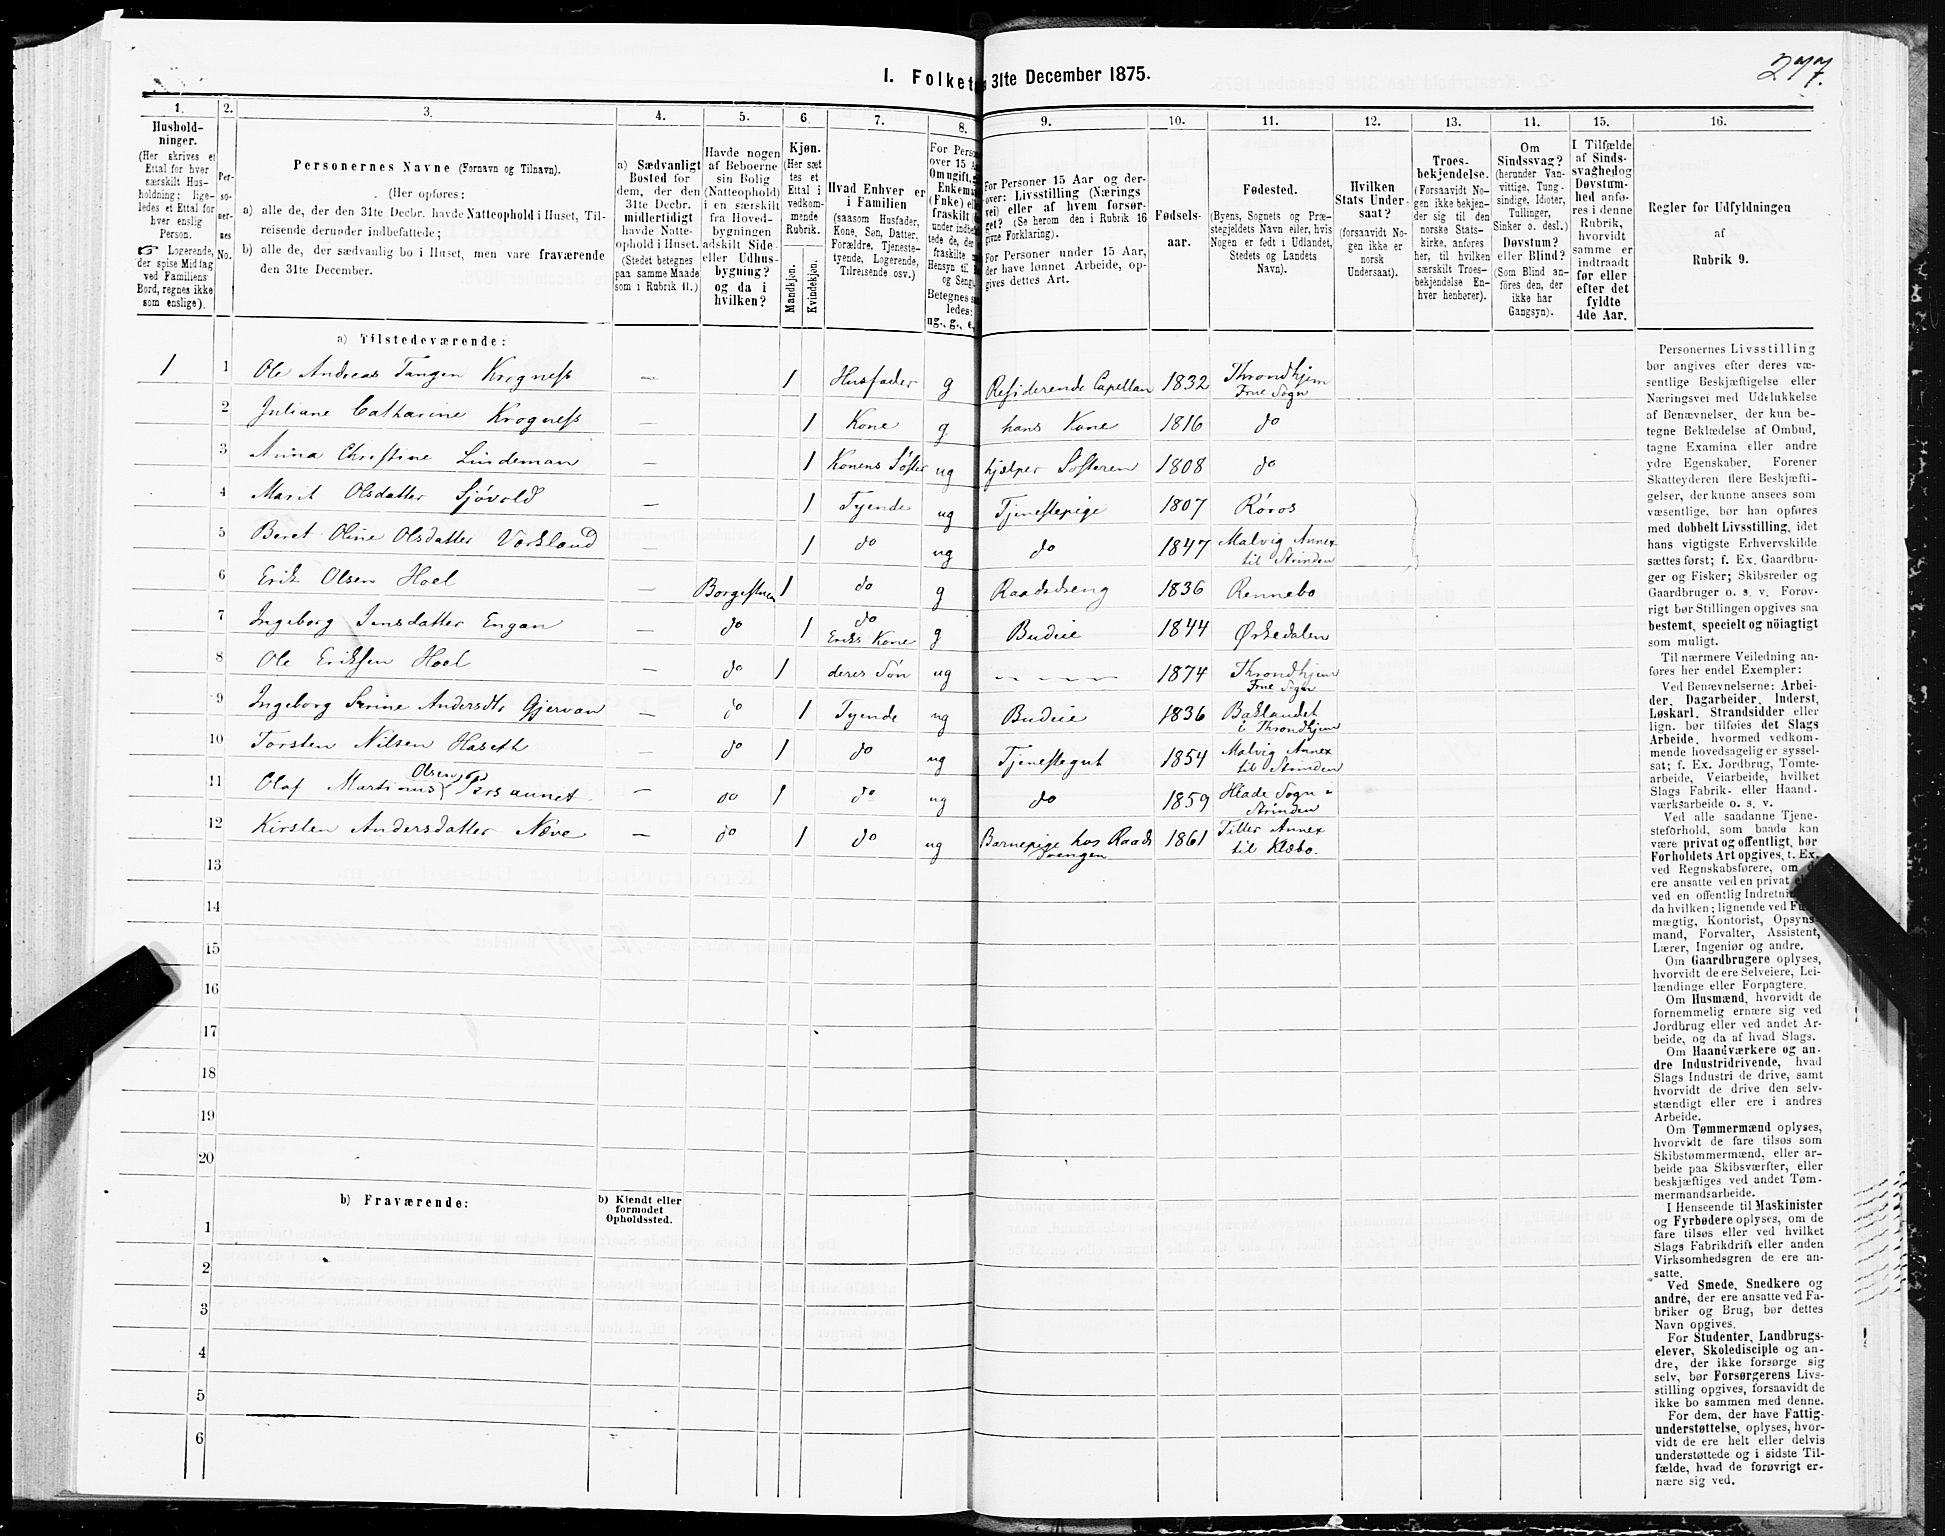 277.
I. Folket 31te December 1875.
1. 2. 3. 4. 5. 6. 7. 8. 9. 10. 11. 12. 13. 14. 15. 16.
Husholdninger.
(Her skrives et Ettal for hver særskilt Husholdning; ligeledes et Ettal for hver enslig Person.
☞ Logerende, der spise Middag ved Familiens Bord, regnes ikke som enslige).
Personernes No.
Personernes Navne (Fornavn og Tilnavn).
(Her opføres:
a) alle de, der den 31te Decbr. havde Natteophold i Huset, Tilreisende derunder indbefattede;
b) alle de, der sædvanlig bo i Huset, men vare fraværende den 31te December.
a) Sædvanligt Bosted for dem, der den 31te Decbr. midlertidigt havde Natteophold i Huset. (Stedet betegnes paa samme Maade som i Rubrik 11.)
Havde nogen af Beboerne sin Bolig (Natteophold) i en særskilt fra Hovedbygningen adskilt Side- eller Udhusbygning? og da i hvilken?
Kjøn. (Her sættes et Ettal i vedkommende Rubrik.
Mandkjøn. Kvindekjøn.
Hvad Enhver er i Familien
(saasom Husfader, Kone, Søn, Datter, Forældre, Tjenestetyende, Logerende, Tilreisende osv.)
For Personer 15 Aar og derover: Livsstilling (Næringsvei) eller af hvem forsørget? (Se herom den i Rubrik 16 givne Forklaring).
For Personer under 15 Aar, der have lønnet Arbeide, opgives dettes Art.
Fødselsaar.
Fødested.
(Byens, Sognets og Præstegjeldets Navn eller, hvis Nogen er født i Udlandet, Stedets og Landets Navn).
Hvilken Stats Undersaat?
(forsaavidt Nogen ikke er norsk Undersaat).
Troesbekjendelse.
(Forsaavidt Nogen ikke bekjender sig til den norske Statskirke, anføres her, til hvilken særskilt Troesbekjendelse Enhver henhører).
Om Sindssvag? (herunder Vanvittige, Tungsindige, Idioter, Tullinger, Sinker o. desl.) Døvstum? eller Blind? (Som Blind anføres den, der ikke har Gangsyn).
I Tilfælde af Sindssvaghed og Døvstumhed anføres i denne Rubrik, hvorvidt samme er indtraadt før eller efter det fyldte 4de Aar.
Regler for Udfyldningen
af
Rubrik 9.
a) Tilstedeværende:
1 1 Ole Andreas Tangen Krogness — 1 Husfader g Residerende Capellan 1832 Throndhjem Frue Sogn
2 Juliane Catharine Krogness — 1 Kone g hans Kone 1816 do
3 Anna Christine Lindeman — 1 Konens Søster ug hjælper Søsteren 1808 do
4 Marit Olsdatter Sjövold — 1 Tyende ug Tjenestepige 1807 Røros
5 Beret Oline Olsdatter Vorseland — 1 do ug do 1847 Malvig Annex til Strinden
6 Erik Olsen Hoel — Borgestuen 1 do g Raadsdreng 1836 Rennebo
7 Ingeborg Jensdatter Engan — do 1 do Eriks Kone g Budeie 1844 Ørkedalen
8 Ole Eriksen Hoel — do 1 deres Søn ug — — — — 1874 Throndhjem Frue Sogn
9 Ingeborg Serine Andersdtr Gjervan — do 1 Tyende ug Budeie 1836 Baklandet i Throndhjem
10 Torsten Nilsen Haseth — do 1 do ug Tjenestegut 1854 Malvig Annex til Strinden
11 Olaf Martinus Olsen — do 1 do ug do 1859 Hlade Sogn Strinden
12 Kirsten Andersdatter Næve — do 1 do ug Barnepige hos Raadsdrengen 1861 Tiller Annex til Klæbo.
13
14
15
16
17
18
19
20
b) Fraværende:
b) Kjendt eller formodet Opholdssted.
1
2
3
4
5
6
Personernes Livsstilling
bør angives efter deres væsentlige Beskjæftigelse eller
Næringsvei med Udelukkelse
af Benævnelser, der kun betegne Beklædelse af Ombud,
tagne Examina eller andre
ydre Egenskaber. Forener
Skatteyderen flere Beskjæftigelser, der kunne ansees som
væsentlige, bør han opføres
med dobbelt Livsstilling, idet
hans vigtigste Erhvervskilde
sættes først; f. Ex. Gaardbruger og Fisker; Skibsreder og
Gaardbruger o. s. v. Forøvrigt bør Stillingen opgives saa
bestemt, specielt og nöiagtigt
som muligt.
Til nærmere Veiledning anføres her endel Exempler:
Ved Benævnelserne: Arbeider, Dagarbeider, Inderst,
Løskarl, Strandsidder eller
lign. bør tilføies det Slags
Arbeide, hvormed vedkommende hovedsagelig er sysselsat; f. Ex. Jordbrug, Tomtearbeide, Veiarbeide, hvilket
Slags Fabrik- eller Haandværksarbeide o. s. v.
Ved alle saadanne Tjenesteforhold, som baade kan
være privat og offentligt, bør
Forholdets Art opgives, t. Ex.
ved Regnskabsførere, om
ere ansatte ved en privat
ved en offentlig
da hvilken; lignende ved
mægtig, Kontorist,
mand, Forvalter, Assistent,
Lærer, Ingeniør og andre.
Om Gaardbrugere oplyses,
hvorvidt de ere Selveiere, Leilændinge eller Forpagtere.
Om Husmænd, hvorvidt de
fornemmelig ernære sig ved
Jordbrug eller ved andet Arbeide, og da af hvad Slags.
Om Haandværkere og andre Industridrivende, hvad
Slags Industri de drive, samt
hvorvidt de drive den selvstændigt eller ere i andres
Arbeide.
Om Tømmermænd oplyses,
hvorvidt de fare tilsøs som
Skibstømmermænd, eller arbeide paa Skibsværfter, eller
beskjæftiges ved andet Tømmermandsarbeide.
I Henseende til Maskinister
og Fyrbødere oplyses, om de
fare tilsøs eller ved hvilket
Slags Fabrikdrift eller anden
Virksomhedsgren de ere ansatte.
Ved Smede, Snedkere og
andre, der ere ansatte ved Fabriker og Brug, bør dettes
Navn opgives.
For Studenter, Landbrugselever, Skoledisciple og andre, der ikke forsørge sig
selv, bør Forsørgerens Livsstilling opgives, forsaavidt de
ikke bo sammen med denne.
For dem, der have Fattigunderstøttelse, oplyses, hvorvidt de ere helt eller delvis
understøttede og i sidste Tilfælde, hvad de forøvrigt ernære sig ved.